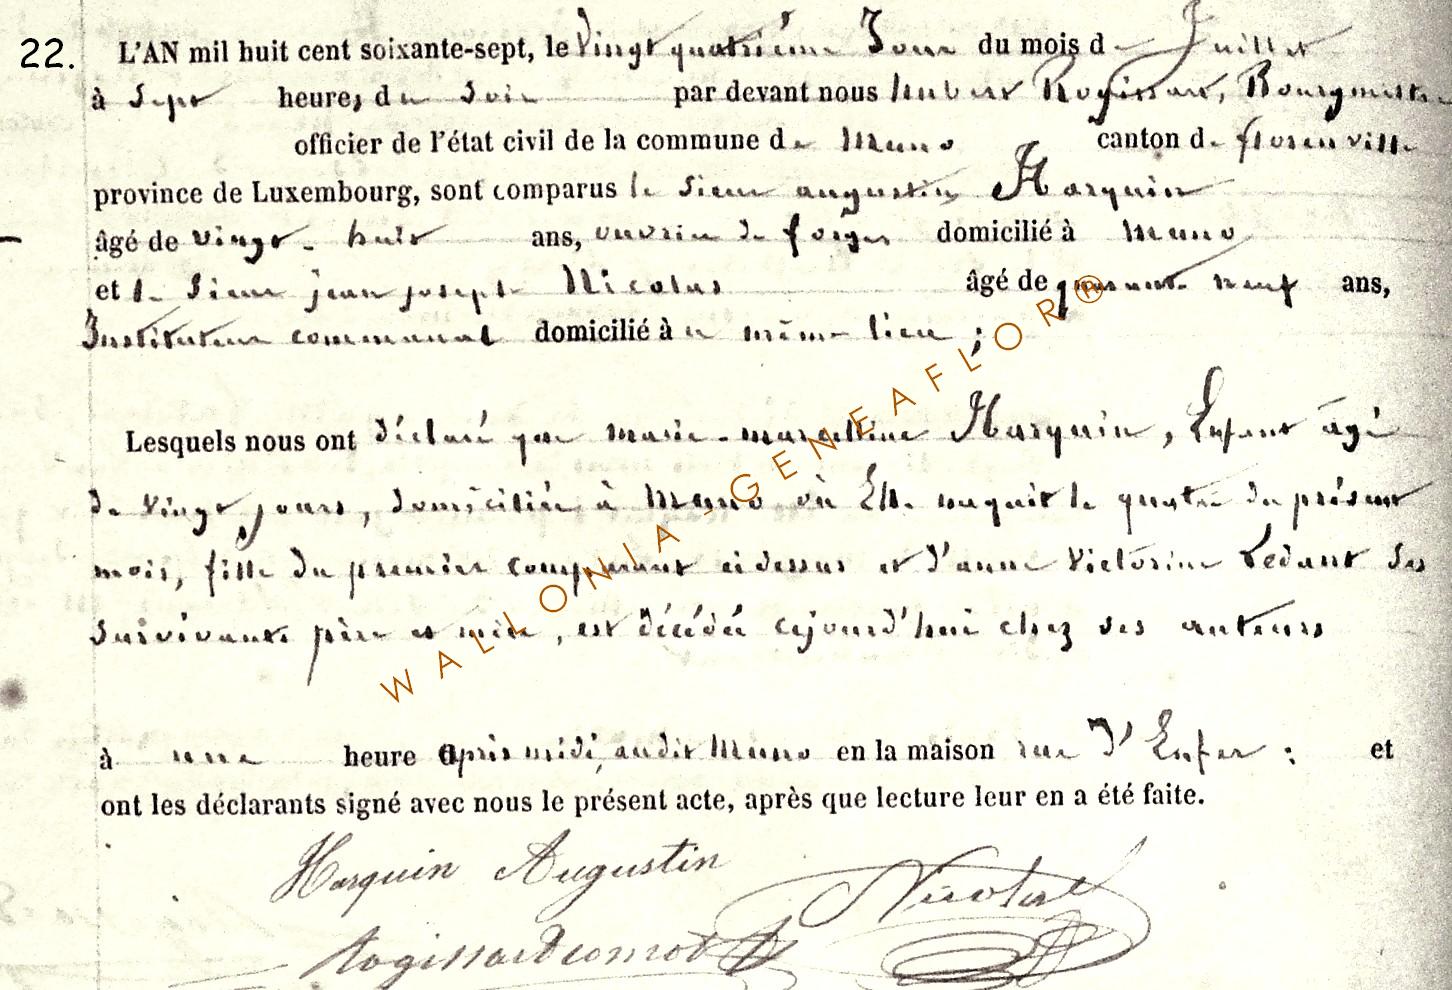 22. L'AN mil huit cent soixante-sept, le Vingt quatrième Jour du mois de Juillet
à Sept heures du Soir par devant nous hubert Rogissart, Bourgmestre
officier de l'état civil de la commune de Muno canton de florenville
province de Luxembourg, sont comparus le Sieur augustin Harquin
âgé de vingt-huit ans, ouvrier de forges domicilié à Muno
et le Sieur jean joseph Nicolas âgé de quarante neuf ans,
Instituteur communal domicilié à u même lieu ;
Lesquels nous ont déclaré que marie-marcelline Harquin, Enfant âgé
de vingt jours, domiciliée à Muno où Elle naquit le quatre du présent
mois, fille du premier comparant ci dessus et d'anne Victorine Ledant ses
survivants père et mère, est décédée cejourd'hui chez ses auteurs
à une heure après midi, audit Muno en la maison rue d'Enfer ; et
ont les déclarants signé avec nous le présent acte, après que lecture leur en a été faite.
Harquin Augustin Nicolas
WALLONIA - GENEAFLOR®